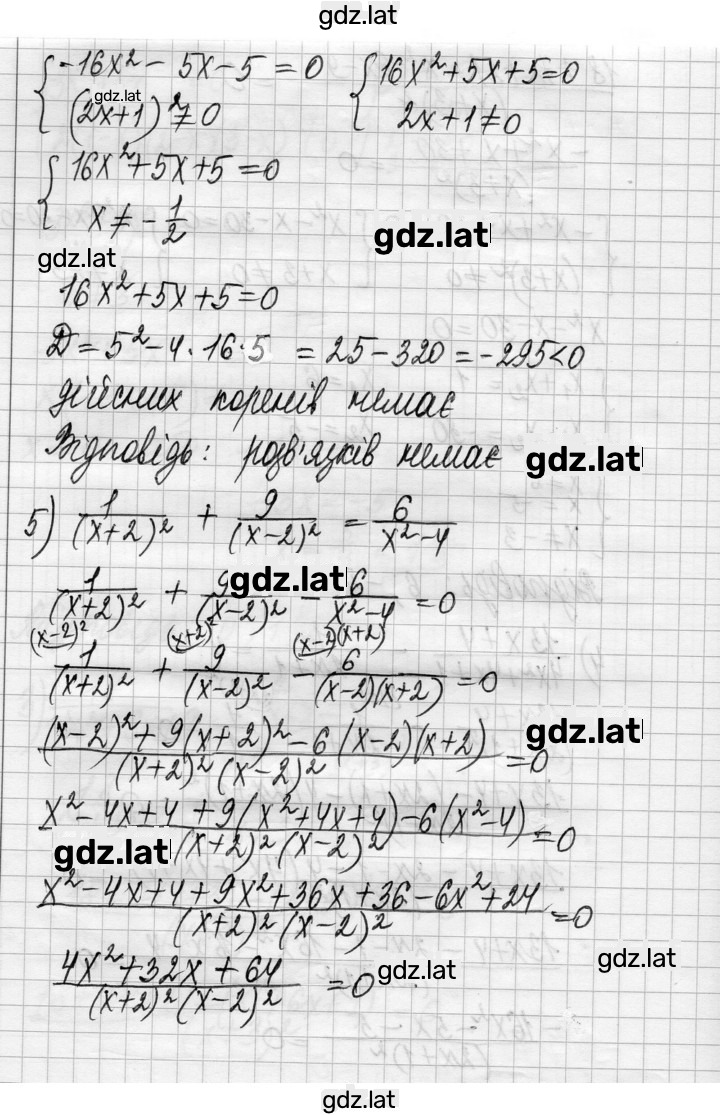 gdz.lat
{ -16x² - 5x - 5 = 0   { 16x² + 5x + 5 = 0
gdz.lat
(2x+1)² ≠ 0   2x + 1 ≠ 0
{ 16x² + 5x + 5 = 0
x ≠ - 1/2
gdz.lat
gdz.lat
16x² + 5x + 5 = 0
D = 5² - 4 · 16 · 5 = 25 - 320 = -295 < 0
дійсних коренів немає
Відповідь: розв'язків немає
gdz.lat
5) 1/(x+2)² + 9/(x-2)² = 6/(x²-4)
gdz.lat
1/(x+2)² + 9/(x-2)² - 6/(x²-4) = 0
(x-2)² (x+2)² (x-2)(x+2)
1/(x+2)² + 9/(x-2)² - 6/((x-2)(x+2)) = 0
((x-2)² + 9(x+2)² - 6(x-2)(x+2))/((x+2)²(x-2)²) = 0
gdz.lat
(x² - 4x + 4 + 9(x² + 4x + 4) - 6(x² - 4))/((x+2)²(x-2)²) = 0
gdz.lat
(x² - 4x + 4 + 9x² + 36x + 36 - 6x² + 24)/((x+2)²(x-2)²) = 0
(4x² + 32x + 64)/((x+2)²(x-2)²) = 0
gdz.lat
gdz.lat
gdz.lat